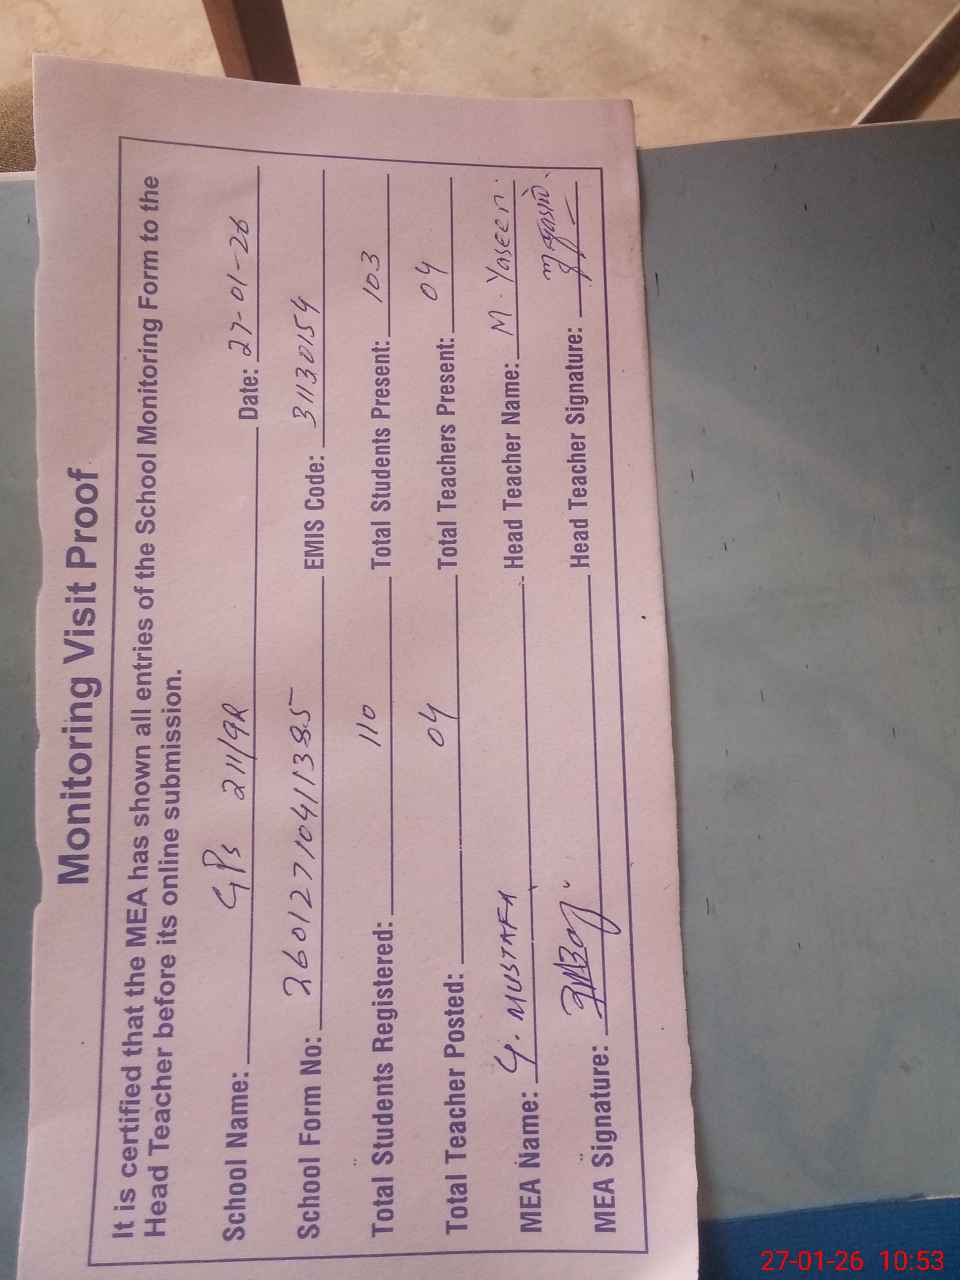 Monitoring Visit Proof
It is certified that the MEA has shown all entries of the School Monitoring Form to the
Head Teacher before its online submission.
School Name: GPS 211/9R Date: 27-01-26
School Form No: 26012710411385 EMIS Code: 31130154
Total Students Registered: 110 Total Students Present: 103
Total Teacher Posted: 04 Total Teachers Present: 04
MEA Name: G. MUSTAFA Head Teacher Name: M. Yaseen
MEA Signature: Head Teacher Signature:
27-01-26 10:53